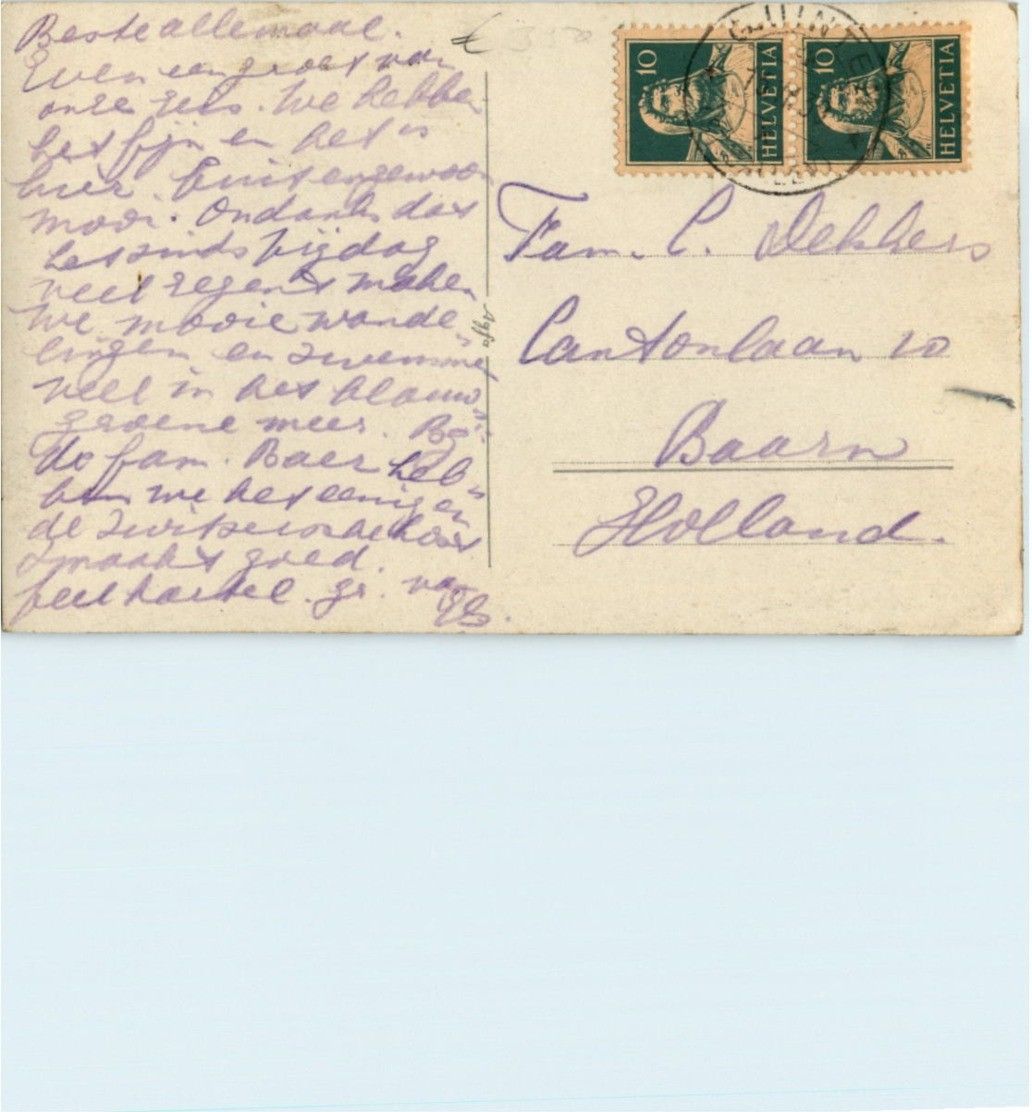 Beste allemaal.
Even een groet van
onze reis. We hebben
het fijn en het is
hier buitengewoon
mooi. Ondanks dat
het sinds Vrijdag
veel regent maken
we mooie wande
lingen en zwemmen
veel in het blauw
groene meer.
de fam. Baer heb
ben we het eenig en
de
smaakt goed.
Veel hartel. gr. van
Els.
€ 3,50
Agfa
HELVETIA 10
HELVETIA 10
Fam. C. Dekkers
Cantonlaan 10
Baarn
Holland.